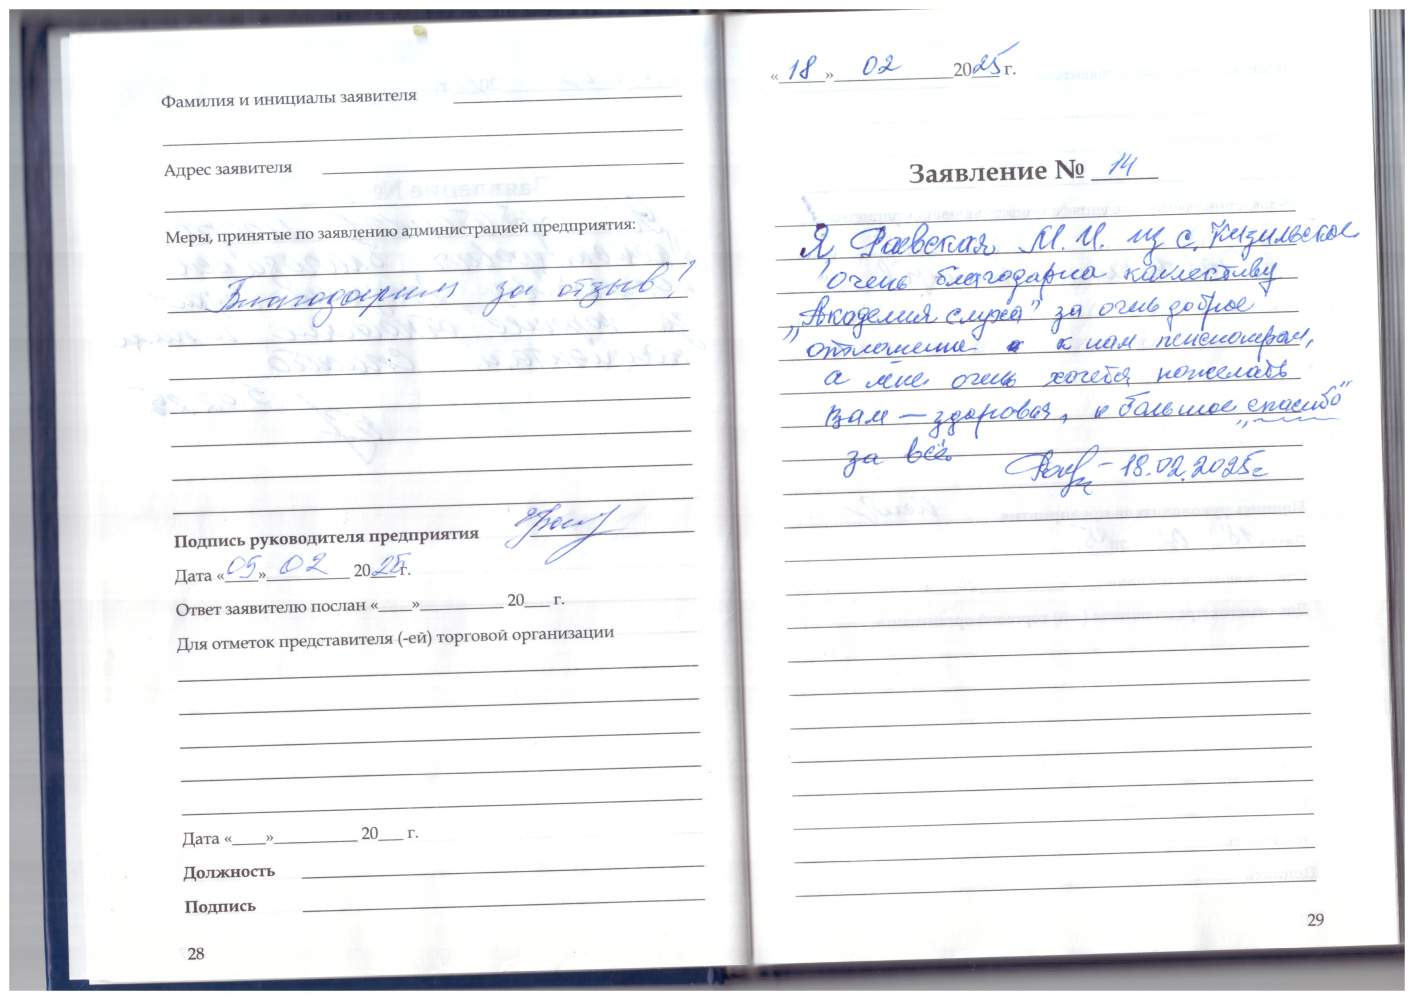 Фамилия и инициалы заявителя
Адрес заявителя
Меры, принятые по заявлению администрацией предприятия:
Благодарим за отзыв!
Подпись руководителя предприятия
Дата «05» 02 2025 г.
Ответ заявителю послан «____»__________ 20___ г.
Для отметок представителя (-ей) торговой организации
Дата «____»__________ 20___ г.
Должность
Подпись
28
«18» 02 2025 г.
Заявление № 14
Я, Раевская М. И. из с. Кизильское
очень благодарна коллективу
"Академия слуха" за очень доброе
отношение к нам пенсионерам,
а мне очень хочется пожелать
Вам – здоровья, и большое "спасибо"
за всё.
18.02.2025г
29